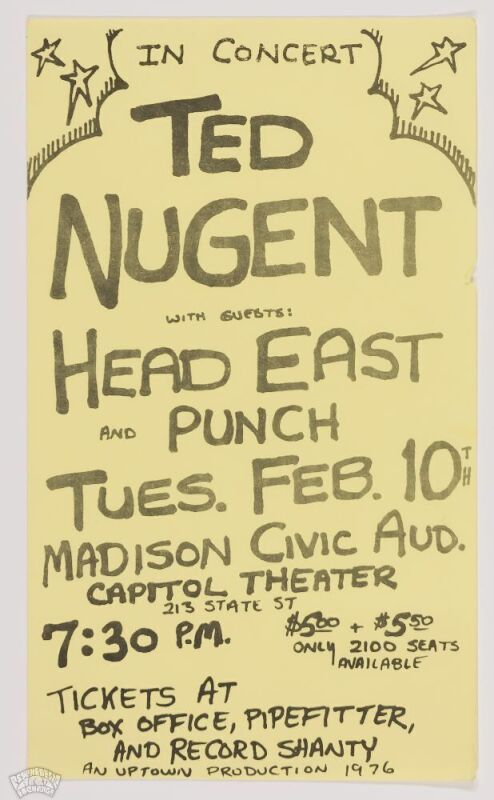 IN CONCERT
TED
NUGENT
WITH GUESTS:
HEAD EAST
AND PUNCH
TUES. FEB. 10TH
MADISON CIVIC AUD.
CAPITOL THEATER
213 STATE ST
7:30 P.M. $5.00 + $5.50
ONLY 2100 SEATS
AVAILABLE
TICKETS AT
BOX OFFICE, PIPEFITTER,
AND RECORD SHANTY
AN UPTOWN PRODUCTION 1976